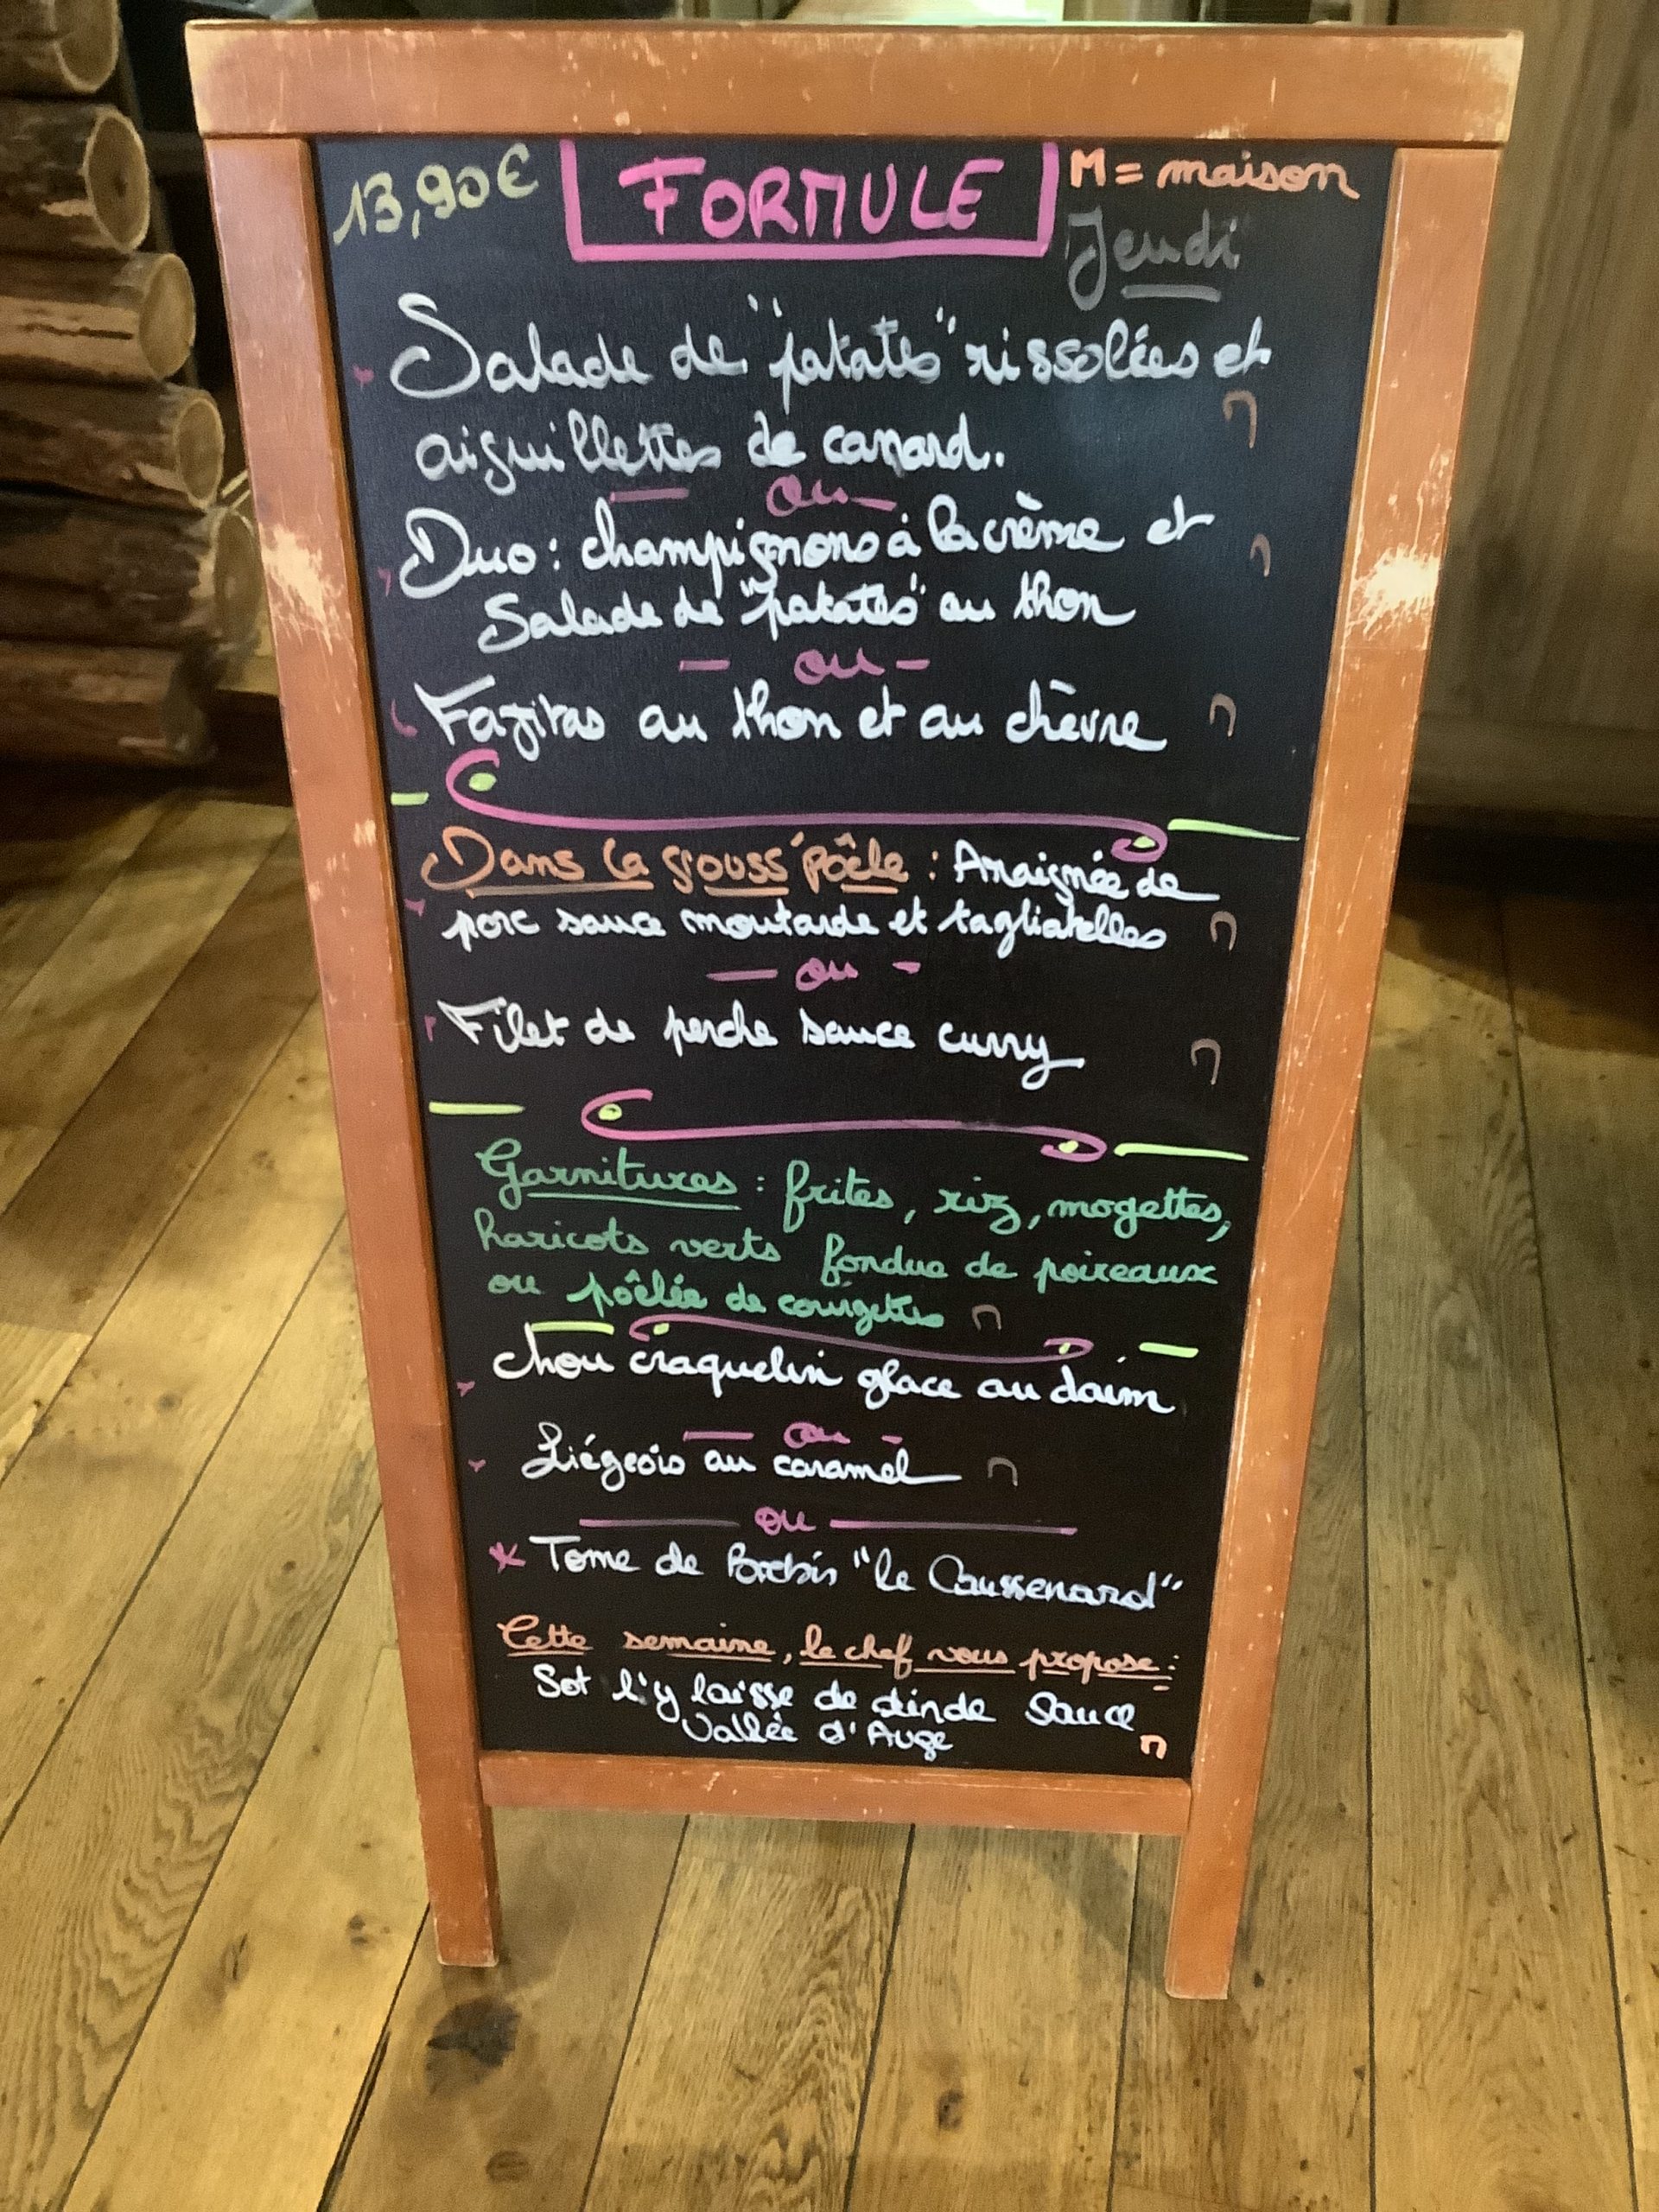 13,90€ FORMULE M = maison
Jeudi
Salade de "patates" rissolées et
aiguillettes de canard. M
— ou —
Duo : champignons à la crème et M
Salade de "patates" au thon
— ou —
Fajitas au thon et au chèvre M
Dans la gouss'pôele : Araignée de
porc sauce moutarde et tagliatelles M
— ou -
Filet de perche sauce curry M
Garnitures : frites, riz, mogettes,
haricots verts fondue de poireaux
ou pôêlée de courgettes M
chou craquelin glace au daim
— ou -
Liégeois au caramel M
— ou —
* Tome de Brebis "le Caussenard"
Cette semaine, le chef vous propose :
Sot l'y laisse de dinde Sauce
Vallée d'Auge M